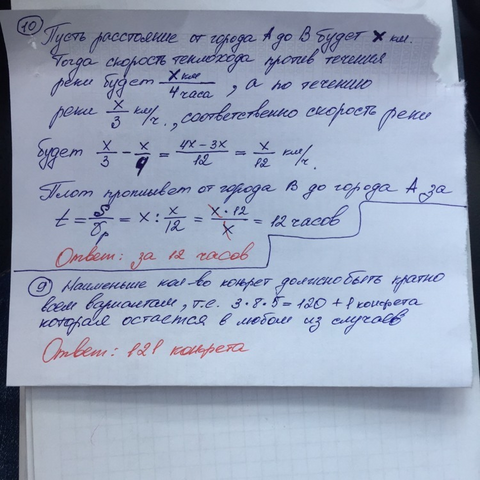 10 Пусть расстояние от города А до В будет x км.
Тогда скорость теплохода против течения
реки будет x км / 4 часа, а по течению
реки x/3 км/ч., соответственно скорость реки
будет x/3 - x/4 = 4x - 3x / 12 = x/12 км/ч.
Плот проплывет от города В до города А за
t = S/υр = x : x/12 = x · 12 / x = 12 часов
Ответ: за 12 часов
9 Наименьше кол-во конфет должно быть кратно
всем вариантам, т.е. 3·8·5=120 + 1 конфета
которая остается в любом из случаев
Ответ: 121 конфета